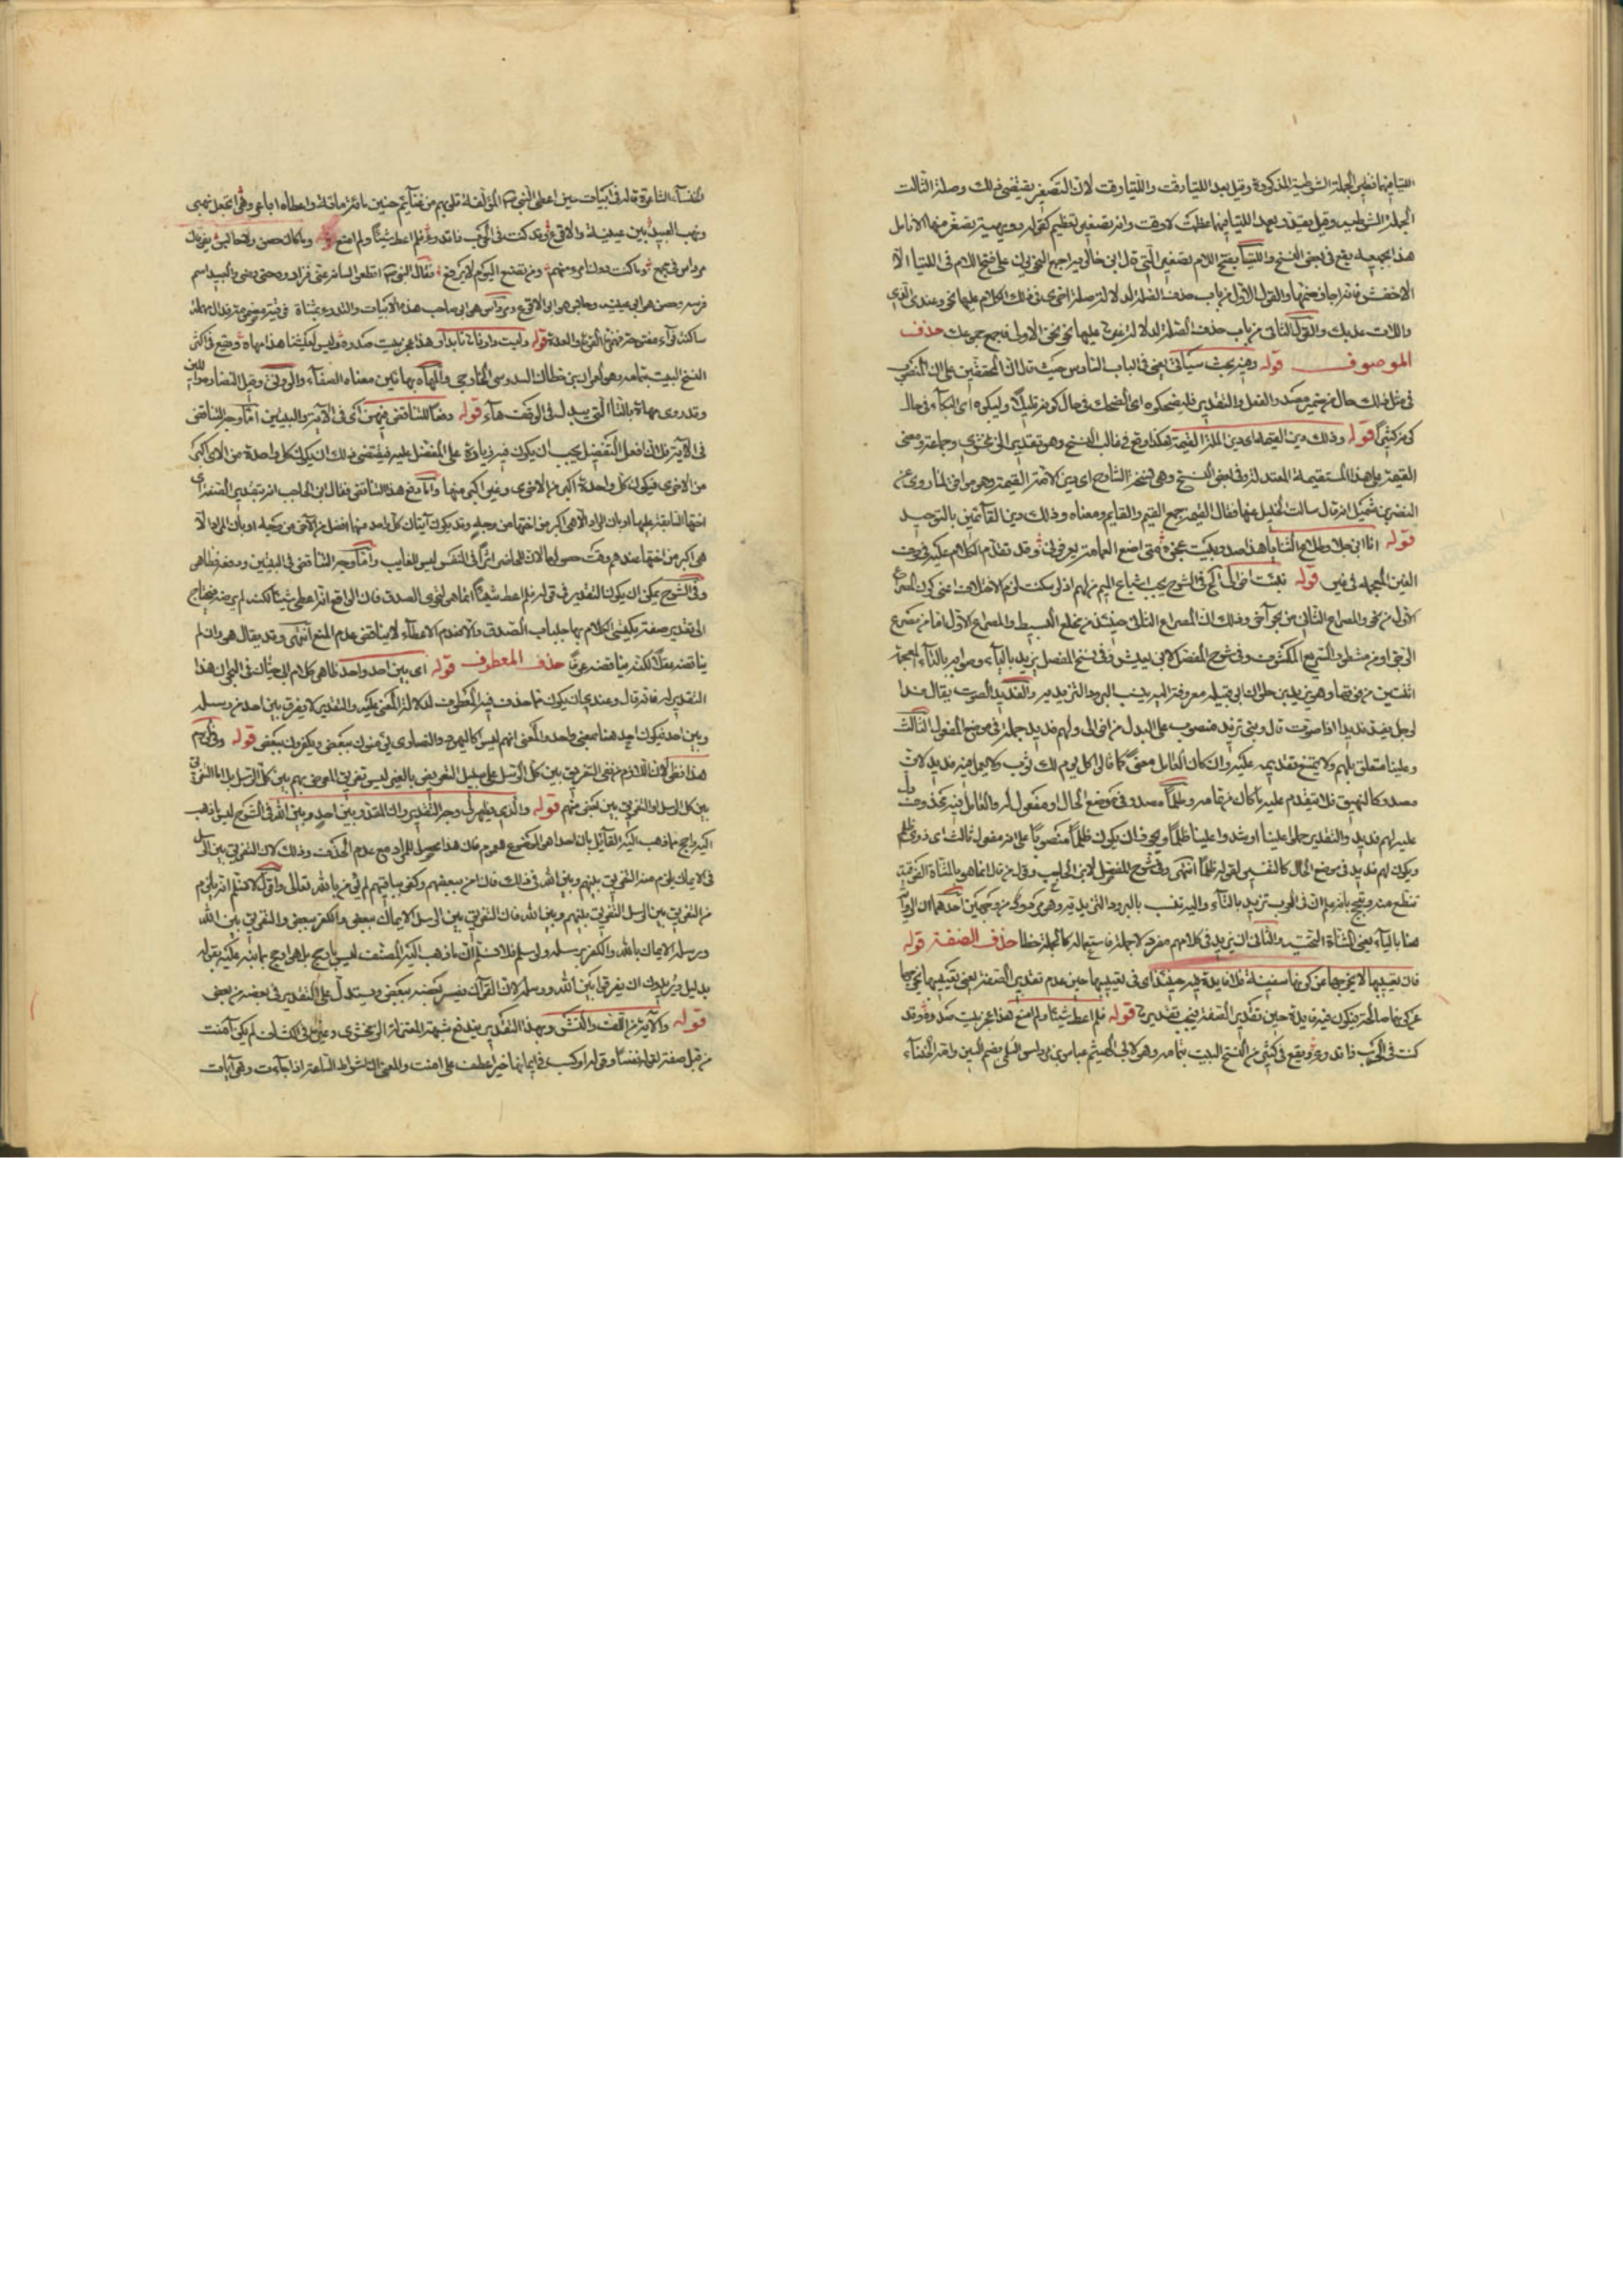 اللتيا فيها نظير الجملة الشرطية المذكورة وقيل بعد اللتيا دقت واللتيا دقت لان التصغير يقتضي ذلك وصلة الثالث
الجملة الشرطية وقيل يقدر بعد اللتيا فيها عظمت لا دقت وانه تصغير تعظيم كقوله دويهية تصفر منها الانامل
هذا يقع في بعض النسخ واللتيا بفتح اللام تصغير التي قال ابن خالويه اجمع النحويون على فتح اللام في اللتيا الا
الاخفش فانه اجاز ضمها والقول الاول من باب حذف الصلة لدلالة صلة اخرى في ذلك الكلام عليها نحو وعندي الذي
واللات عدنك والقول الثاني من باب حذف الصلة لدلالة غيرها عليها نحو نحن الاولى فاجمع جموعك حذف
الموصوف قوله وفيه بحث سيأتي يعني في الباب السادس حيث قال ان المحققين على ان المنصوب
في مثل ذلك حال من ضمير مصدر الفعل والتقدير فليضحكوه اي الضحك في حال كونه قليلا وليبكوه اي البكاء في حال
كونه كثيرا قوله وذلك دين القيمة اي دين الملة القيمة هكذا وقع في غالب النسخ وهو تقدير الزمخشري وجماعة ومعنى
القيمة على هذا المستقيمة المعتدلة وفي بعض النسخ وهي نسخة الشارح اي دين الامة القيمة وهو موافق لما روي عن
النضر بن شميل انه قال سألت الخليل عنها فقال القيمة جمع القيم والقايم ومعناه وذلك دين القائمين بالتوحيد
قوله انا ابن جلا وطلاع الثنايا هذا صدر بيت عجزه متى اضع العمامة تعرفوني وقد تقدم الكلام عليه في حرف
الغين المعجمة في غير قوله نبئت اخوالي الخ في الشرح يجب اشباع الميم من لهم اذ لو سكنت لزم الاختلاف اعني كون المصراع
الاول من نحو والمصراع الثاني من بحر آخر وذلك ان المصراع الثاني حينئذ من مخلع البسيط والمصراع الاول اما من مصرع
الرجز او من مشطور السريع المكشوف وفي شرح المفصل لابن يعيش وفي نسخ المفصل يزيد بالياء وصوابه بالتاء المعجمة
اثنتين من فوقها وهو تزيد بن حلوان ابو قبيلة معروفة اليه ينسب البرود التزيدية والفديد الصوت يقال فد
الرجل يفد فديدا اذا صوت قال وبني تزيد منصوب على البدل من اخوالي ولهم فديد جملة في موضع المفعول الثالث
وعلينا متعلق بلهم ولا يمتنع تقديمه عليه وان كان العامل معنى كما قالوا كل يوم لك ثوب ولا يعمل فيه فديد لانه
مصدر كالنهيق فلا يتقدم عليه ما كان من تمامه وظلما مصدر في موضع الحال او مفعول له والعامل فيه محذوف دل
عليه لهم فديد والتقدير حملوا علينا او شدوا علينا ظلما ويجوز ان يكون ظلما منصوبا على انه مفعول ثالث اي ذوي ظلم
ويكون لهم فديد في موضع الحال كالتفسير لقوله ظلما انتهى وفي شرح المفصل لابن الحاجب وقول من قال انما هو بالمثناة الفوقية
تنطع منه وتبجح بانه علم ان في العرب تزيد بالتاء واليه تنسب البرود التزيدية وهو مردود من وجهين احدهما ان الرواية
هنا بالياء يعني المثناة التحتية والثاني ان يزيد في كلامهم مفرد لا جملة فاستعماله كالجملة خطا حذف الصفة قوله
فان تعييبها لا يخرجها عن كونها سفينة فلا فايدة فيه حينئذ اي في تعييبها حين عدم تقدير الصفة يعني تعييبها يخرجها
عن كونها صالحة فيكون فيه فايدة حين تقدير الصفة فيجب تقديرها قوله فلم اعط شيئا ولم امنع هذا عجز بيت صدره وقد
كنت في الحرب ذا تدرء ويقع في كثير من النسخ البيت بتمامه وهو لابي الهيثم عباس بن مرداس السلمي بضم السين وامه الخنساء
الخنساء الشاعرة قاله في ابيات حين اعطى النبي المؤلفة قلوبهم من غنايم حنين مائة مائة واعطاه اباعر وهي اتجعل نهبي
ونهب العبيد بين عيينة والاقرع وقد كنت في الحرب ذا تدرء فلم اعط شيئا ولم امنع وما كان حصن ولا حابس يفوقان
مرداس في مجمع وما كنت دون امرء منهم ومن تضع اليوم لا يرفع فقال النبي اقطعوا لسانه عني فزادوه حتى رضي والعبيد اسم
فرسه وحصن هو ابو عيينة وحابس هو ابو الاقرع ومرداس هو ابو صاحب هذه الابيات والتدرء بمثناة فوقية مضمومة فدال مهملة
ساكنة فراء مفتوحة فهمزة القوة والعدة قوله وليست دارنا هاتا بدار هذا عجز بيت صدره وليس لعيشنا هذا مهاه ووقع في اكثر
النسخ البيت بتمامه وهو لعمران بن حطان السدوسي الخارجي والمهاه بهائين معناه الصفاء والرونق وقيل النضارة والحسن
وقد روى مهاة بالتاء التي تبدل في الوقف هاء قوله ودفعا للتناقض فيهن اي في الآية والبيتين اما وجه التناقض
في الآية فلان افعل التفضيل يجب ان يكون فيه زيادة على المفضل عليه فيقتضي ذلك ان يكون كل واحدة من الاي اكبر
من الاخرى فيكون كل واحدة اكبر من الاخرى وغير اكبر منها واما دفع هذا التناقض فقال ابن الحاجب انه بتقدير الصفة اي
اختها السابقة عليها او بان المراد الا هي اكبر من اختها من وجه وقد يكون آيتان كل واحد منهما افضل من الآخر من وجه او بان المراد الا
هي اكبر من اختها عندهم وقت حصولها لان للحاضر اثرا في النفس ليس للغايب واما وجه التناقض في البيتين ودفعه فظاهر
وفي الشرح يمكن ان يكون التقدير في قوله فلم اعط شيئا انما هو لتحري الصدق فان الواقع انه اعطي شيئا لكنه لم يرضه فيحتاج
الى تقدير صفة يكتسي الكلام بها جلباب الصدق والا فعدم الاعطاء لا يناقض عدم المنع انتهى وقد يقال هو وان لم
يناقضه عقلا لكنه يناقضه عرفا حذف المعطوف قوله اي بين احد واحد ظاهر كلام ابي حيان في البحر ان هذا
التقدير له فانه قال وعندي ان يكون مما حذف فيه المعطوف لدلالة المعنى عليه والتقدير لا يفرق بين احد من رسله
وبين احد فيكون احد هنا بمعنى واحد والمعنى انهم ليس كاليهود والنصارى يؤمنون ببعض ويكفرون ببعض قوله
هذا نظر لان اللازم من نفي التفريق بين كل الرسل على سبيل التعريض بالغير ليس تفريق المعرض بهم بين كل الرسل بل اما التفريق
بين كل الرسل او التفريق بين بعض منهم قوله والذي يظهر لي وجه التقدير وان المقدر وبين احد وبين الله في الشرح ليس ما ذهب
اليه راجح ما ذهب اليه القائل بان احدا هو الموضوع للعموم فان هذا محصل للمراد مع عدم الحذف وذلك لان التفريق بين الرسل
في الايمان يلزم منه التفريق بينهم وبين الله في ذلك فان من آمن ببعضهم وكفر بباقيهم لم يؤمن بالله تعالى واقول لا نسلم انه يلزم
من التفريق بين الرسل التفريق بينهم وبين الله فان التفريق بين الرسل الايمان ببعض والكفر ببعض والتفريق بين الله
ورسله الايمان بالله والكفر برسله ولو سلم فلا نسلم ان ما ذهب اليه المصنف ليس براجح بل هو راجح بما نبه عليه بقوله
بدليل ويريدون ان يفرقوا بين الله ورسله لان القرآن يفسر بعضه ببعض ويستدل على التقدير في بعضه من بعض
قوله والآية من اللف والنشر وبهذا التقدير يندفع شبهة المعتزلة الزمخشري وغيره قال في الكشاف لم تكن آمنت
من قبل صفة لقوله نفسا وقوله او كسبت في ايمانها خيرا عطف على آمنت والمعنى ان اشراط الساعة اذا جاءت وهي آيات